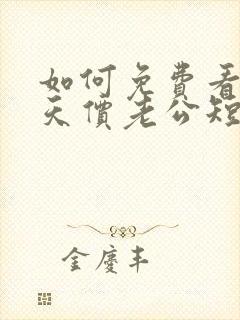 如何免費看
天價老公短
金慶丰